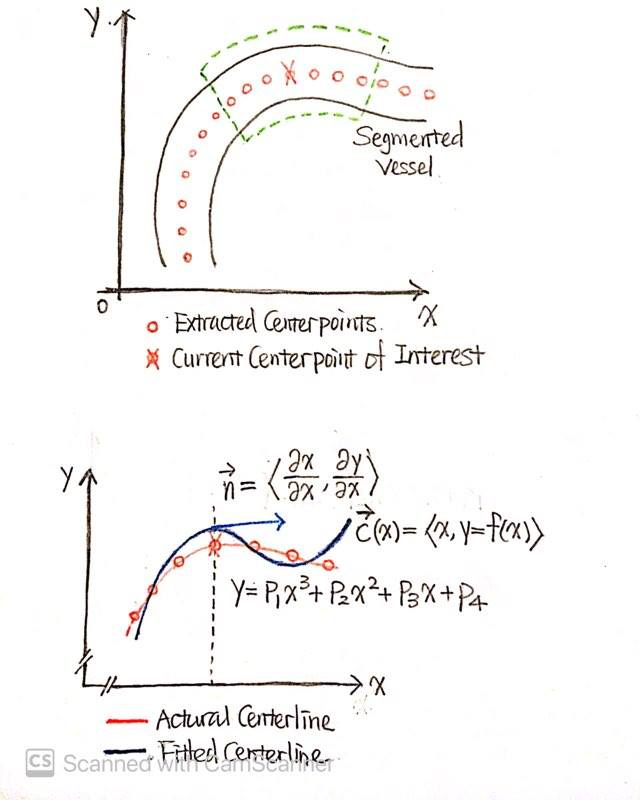 Y
Segmented
Vessel
0
X
Extracted Centerpoints.
Current Centerpoint of Interest
Y
n⃗ = ⟨∂x/∂x, ∂y/∂x⟩
c⃗(x) = ⟨x, y=f(x)⟩
y = P₁x³ + P₂x² + P₃x + P₄
X
Actural Centerline
Fitted Centerline
CS Scanned with CamScanner